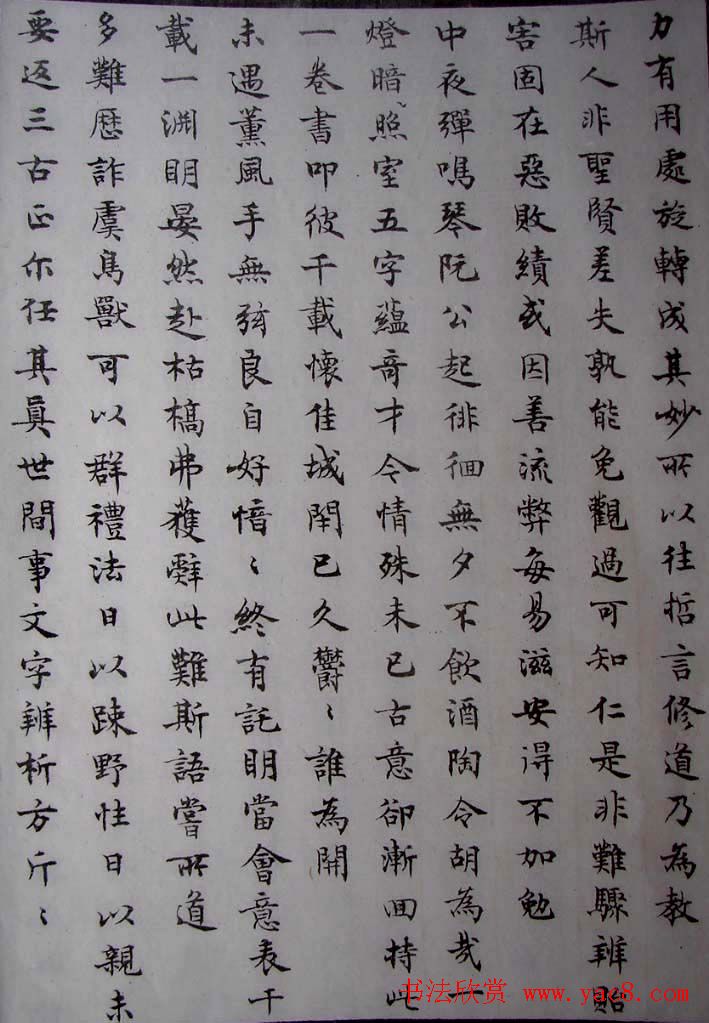 力有用處旋轉成其妙所以往哲言修道乃為教
斯人非聖賢差失孰能免觀過可知仁是非難驟辨貽
害固在惡敗績或因善流弊每易滋安得不加勉
中夜彈鳴琴阮公起徘徊無夕不飲酒陶令胡為哉一
燈暗照室五字蘊奇才今情殊未已古意卻漸回持此
一卷書叩彼千載懷佳城閉已久鬱〻誰為開
未遇薰風手無弦良自好愔〻終有託明當會意表千
載一淵明晏然赴枯槁弗獲辭此難斯語嘗所道
多難歷詐虞鳥獸可以群禮法日以疎野性日以親未
要返三古正尔任其真世間事文字辨析方斤〻
书法欣赏 www.yac8.com